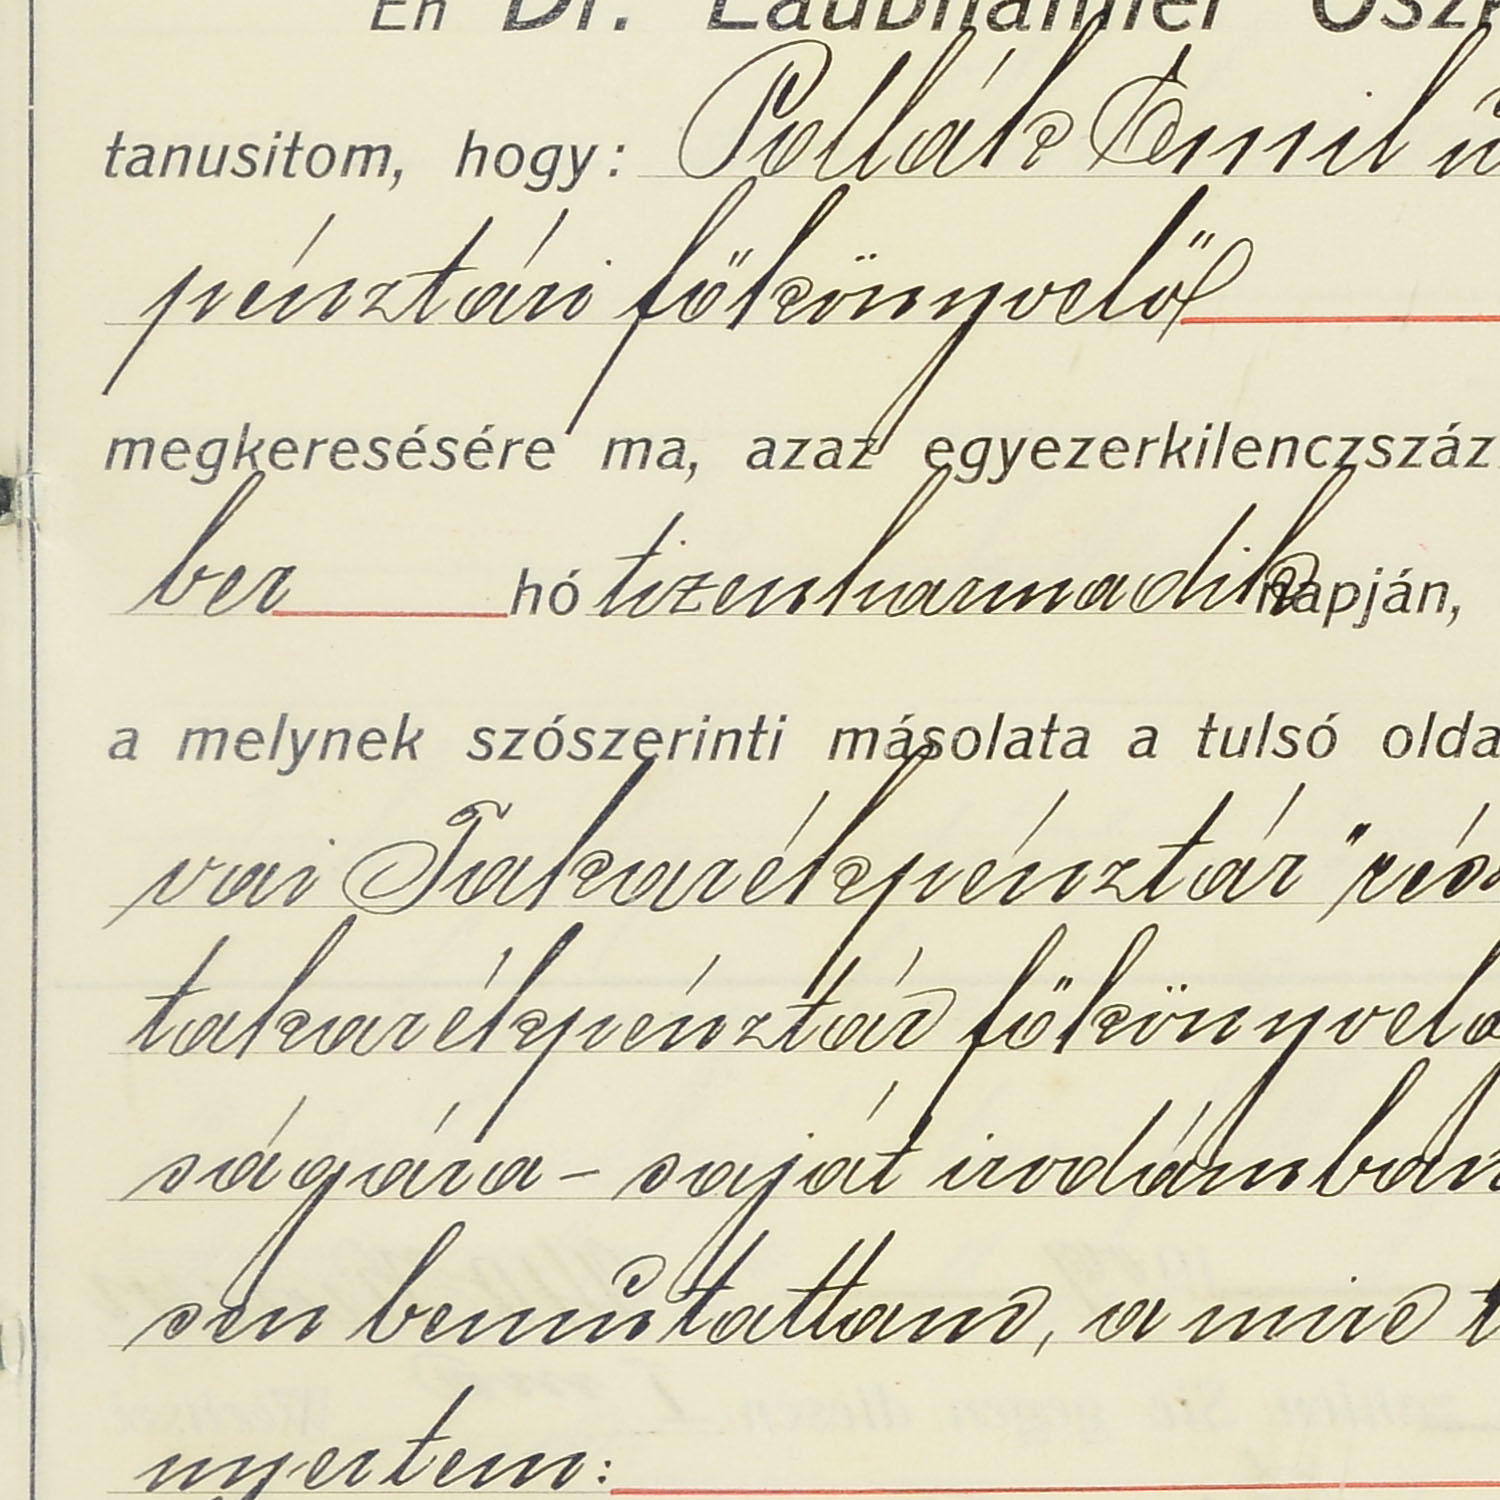 Én Dr. Laubhaimer Oszk
tanusitom, hogy: Pollák Emil ú
pénztári főkönyvelő
megkeresésére ma, azaz egyezerkilenczszáz
ber hó tizenharmadik napján,
a melynek szószerinti másolata a tulsó olda
vai Takarékpénztár" rés
takarékpénztár főkönyvelő
ságára - saját irodámban
sen bemutattam, a mire t
nyertem: